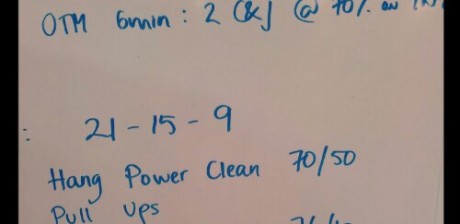 OTM 6min : 2 C&J @ 70%
:
21 - 15 - 9
Hang Power Clean 70/50
Pull Ups